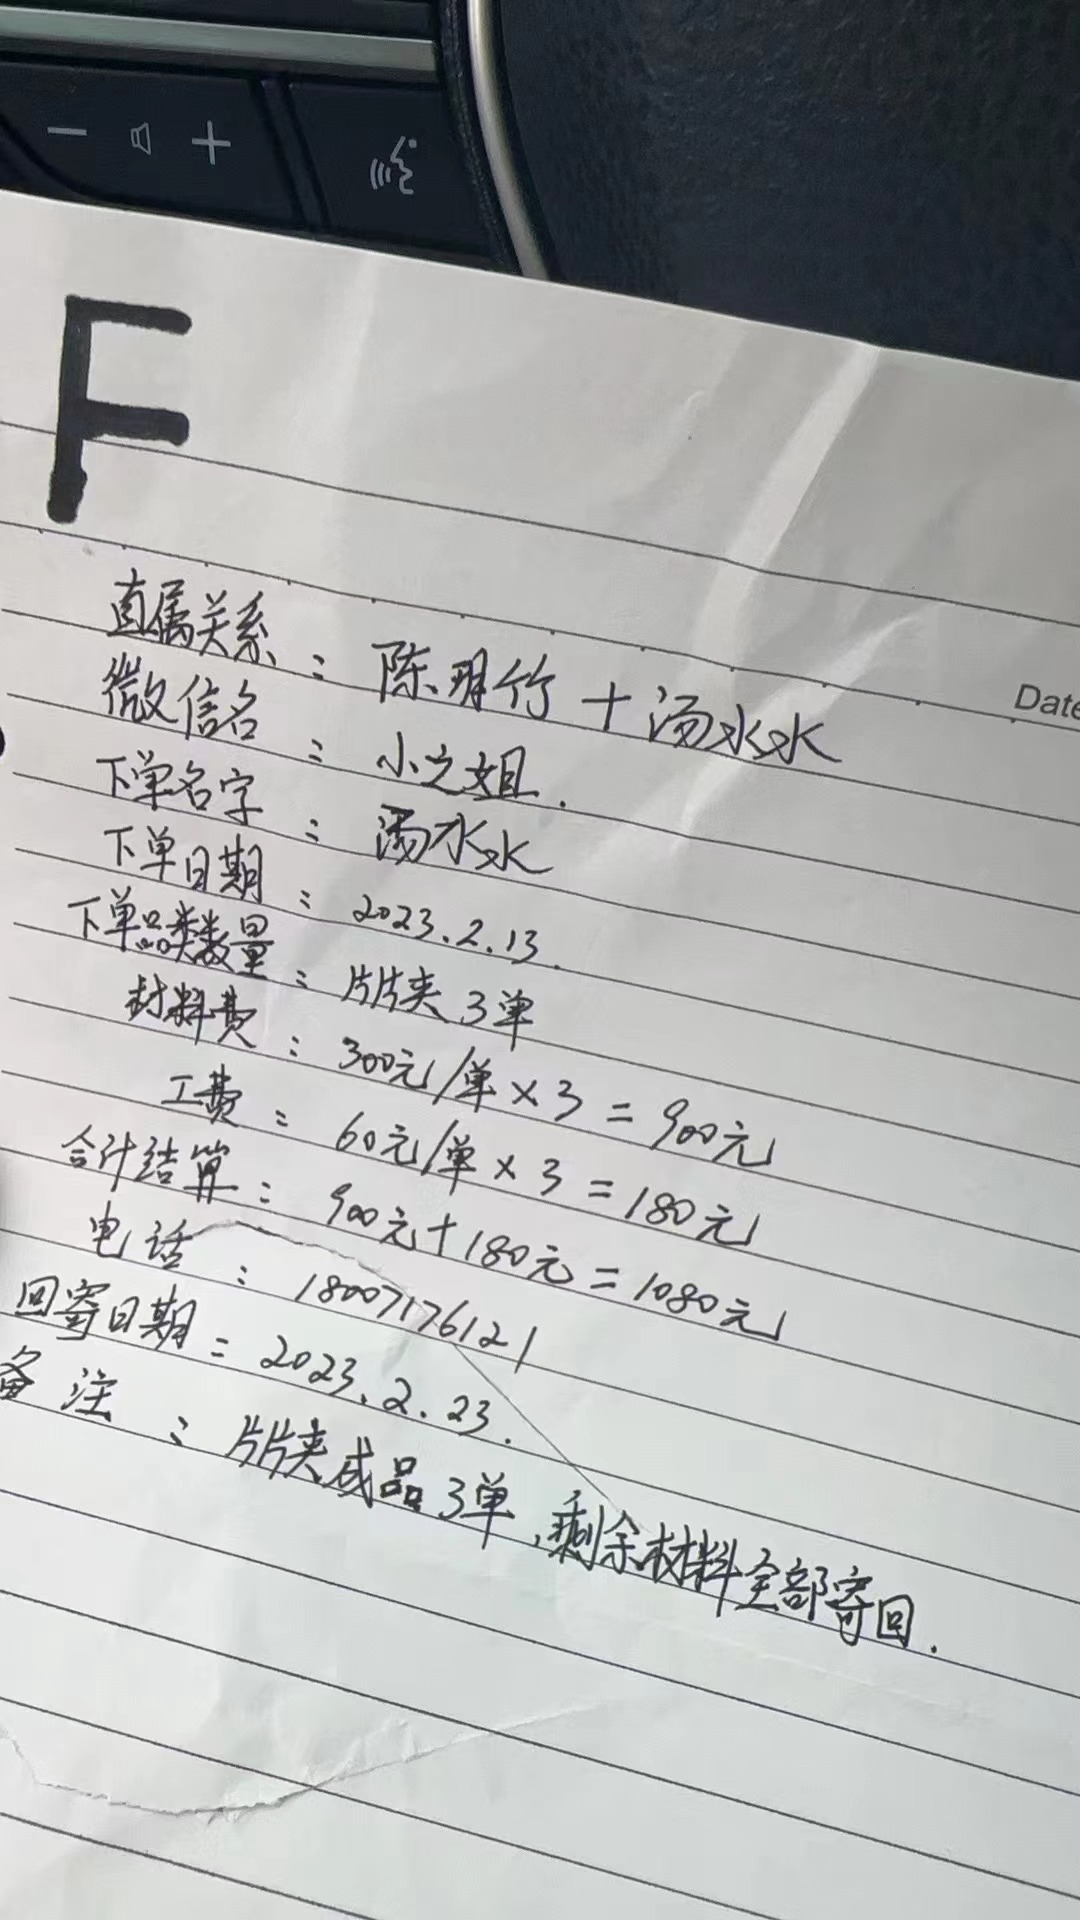 F
Date
直属关系：陈明竹+汤水水
微信名：小之姐.
下单名字：汤水水
下单日期：2023.2.13.
下单品类数量：片片夹3单
材料费：300元/单×3=900元
工费：60元/单×3=180元
合计结算：900元+180元=1080元
电话：18007176121
回寄日期：2023.2.23.
备注：片片夹成品3单,剩余材料全部寄回.